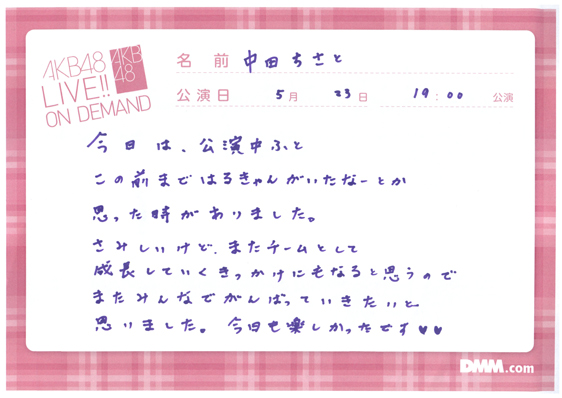 AKB48
LIVE!!
ON DEMAND
AKB
48
名前 中田ちさと
公演日 5月 23日 19:00 公演
今日は、公演中ふと
この前まではるきゃんがいたなーとか
思った時がありました。
さみしいけど、またチームとして
成長していくきっかけにもなると思うので
またみんなでがんばっていきたいと
思いました。今日も楽しかったです♥♥
DMM.com